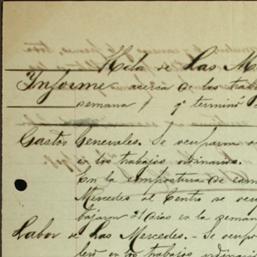 Mila de Las M
Informe acerca de los trab
semana q' terminó
Gastos Generales. Se ocuparon
en los trabajos ordinarios.
En la compostura de cam
Mercedes al Centro se
bajaron 21 dias en la semana
Labor de Las Mercedes.- Se ocup
en los trabajos ordinario